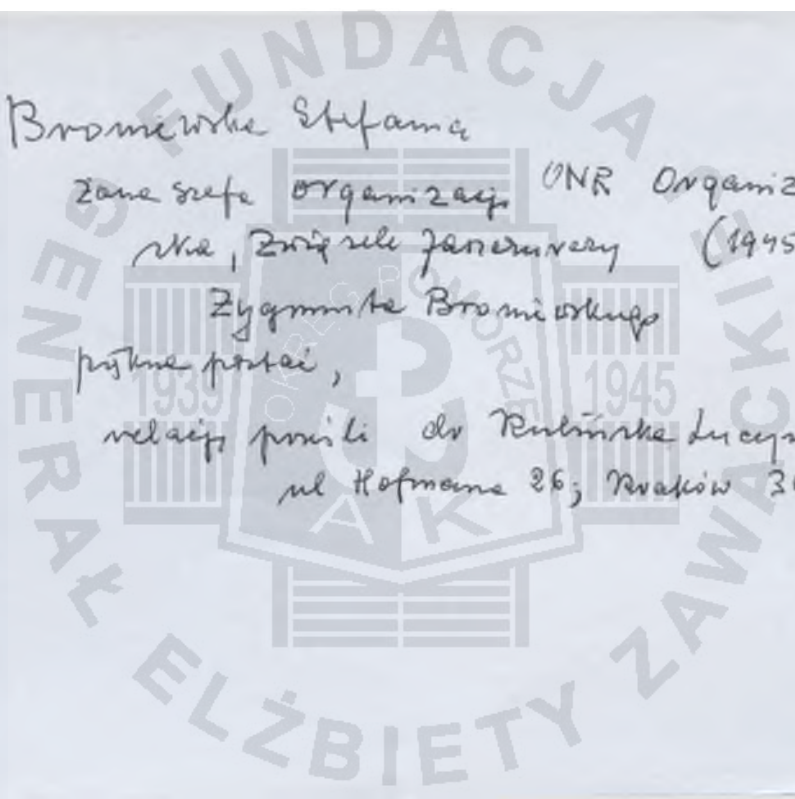 Broniewska Stefania
żona szefa organizacji ONR Organiz
ska, Związek Jaszczurczy (1945
Zygmunta Broniewskiego
piękna postać,
relację posiada dr Kulińska Lucyn
ul Hofmana 26; Kraków 30
FUNDACJA GENERAŁ ELŻBIETY ZAWACKIEJ
OKRĘG POMORZE
1939 1945
AK